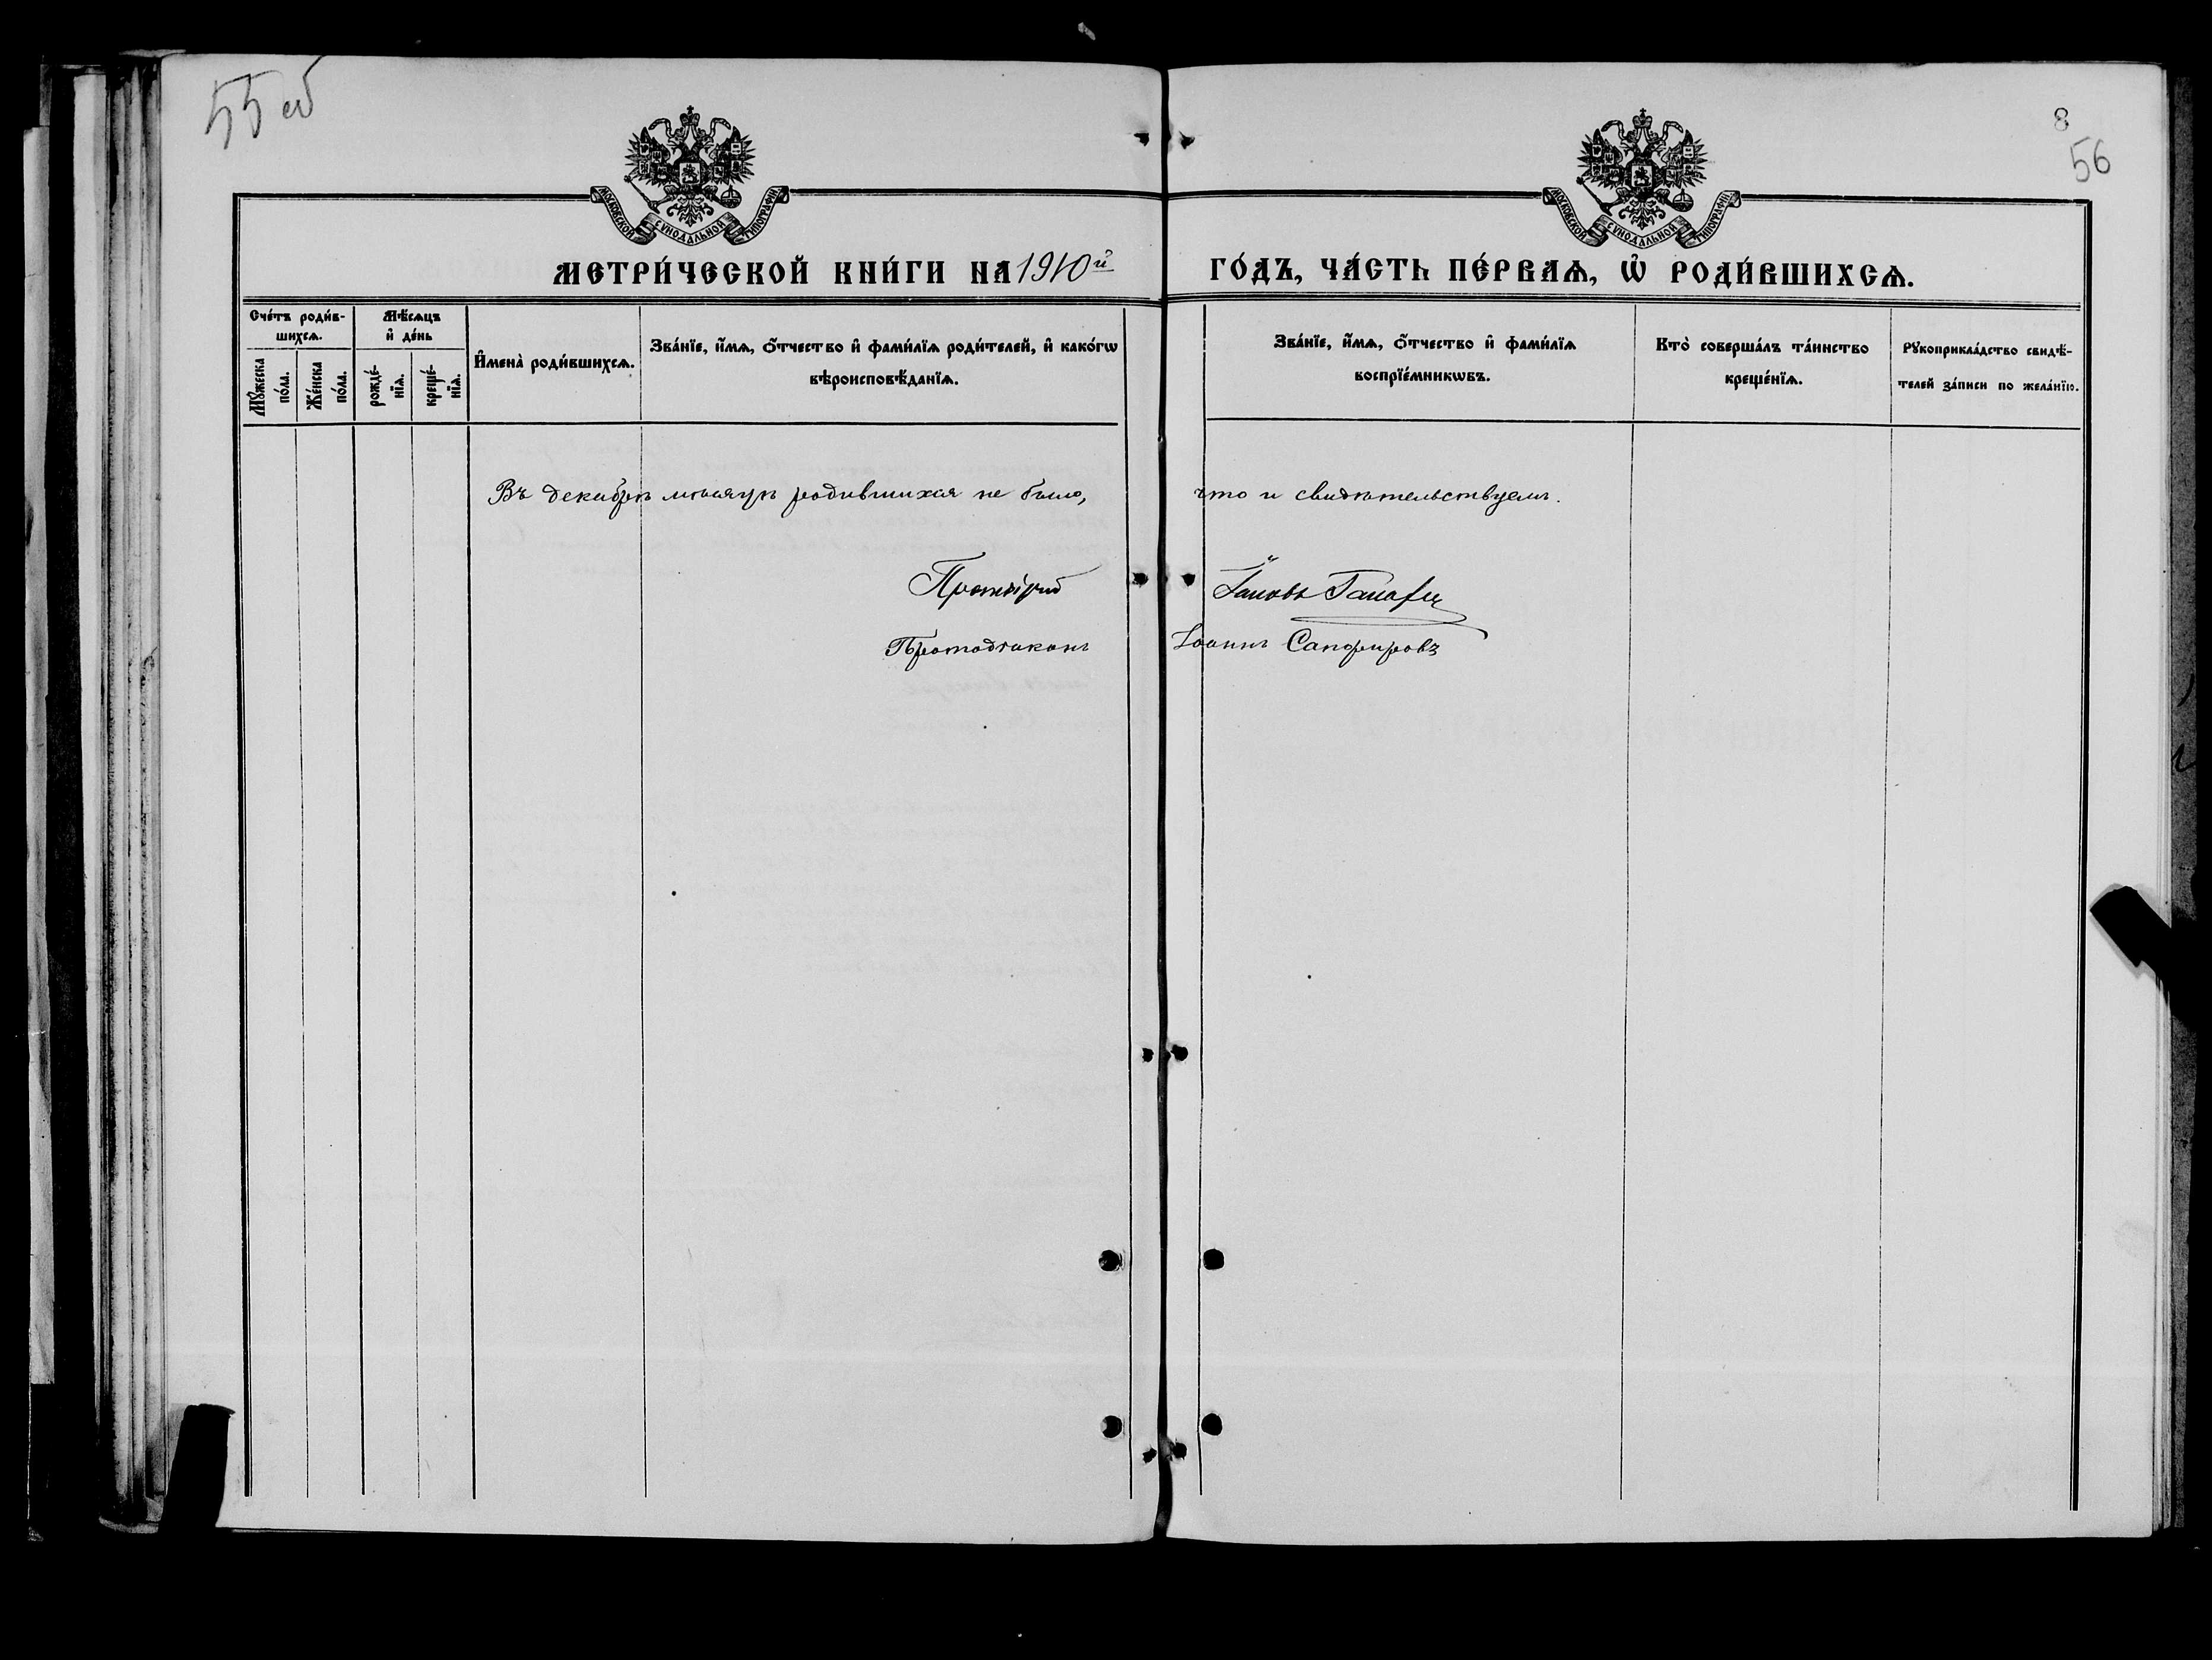 55 об
8
56
МОСКОВСКОЙ СѴНОДАЛЬНОЙ ТИПОГРАФІИ
МОСКОВСКОЙ СѴНОДАЛЬНОЙ ТИПОГРАФІИ
МЕТРИ́ЧЕСКОЙ КНИ́ГИ НА 1910й ГО́ДЪ, ЧА́СТЬ ПЕ́РВАѦ, Ѡ҆ РОДИ́ВШИХСѦ.
Сче́тъ роди́в-
шихсѧ.
Мꙋ́жеска
по́ла.
Же́нска
по́ла.
Мѣ́сѧцъ
и҆ де́нь
рожде́-
нїѧ.
креще́-
нїѧ.
И҆мена̀ роди́вшихсѧ.
Зва́нїе, и҆́мѧ, ѻ҆́тчество и҆ фами́лїѧ роди́телей, и҆ како́гѡ
вѣроисповѣ́данїѧ.
Зва́нїе, и҆́мѧ, ѻ҆́тчество и҆ фами́лїѧ
воспрїе́мникѡвъ.
Кто̀ соверша́лъ та́инство
креще́нїѧ.
Рꙋкоприкла́дство свидѣ́-
телей за́писи по жела́нїю.
Въ декабрѣ мѣсяцѣ родившихся не было, что и свидѣтельствуемъ.
Протоіерей Іаковъ
Протодіаконъ Іоаннъ Сапфировъ